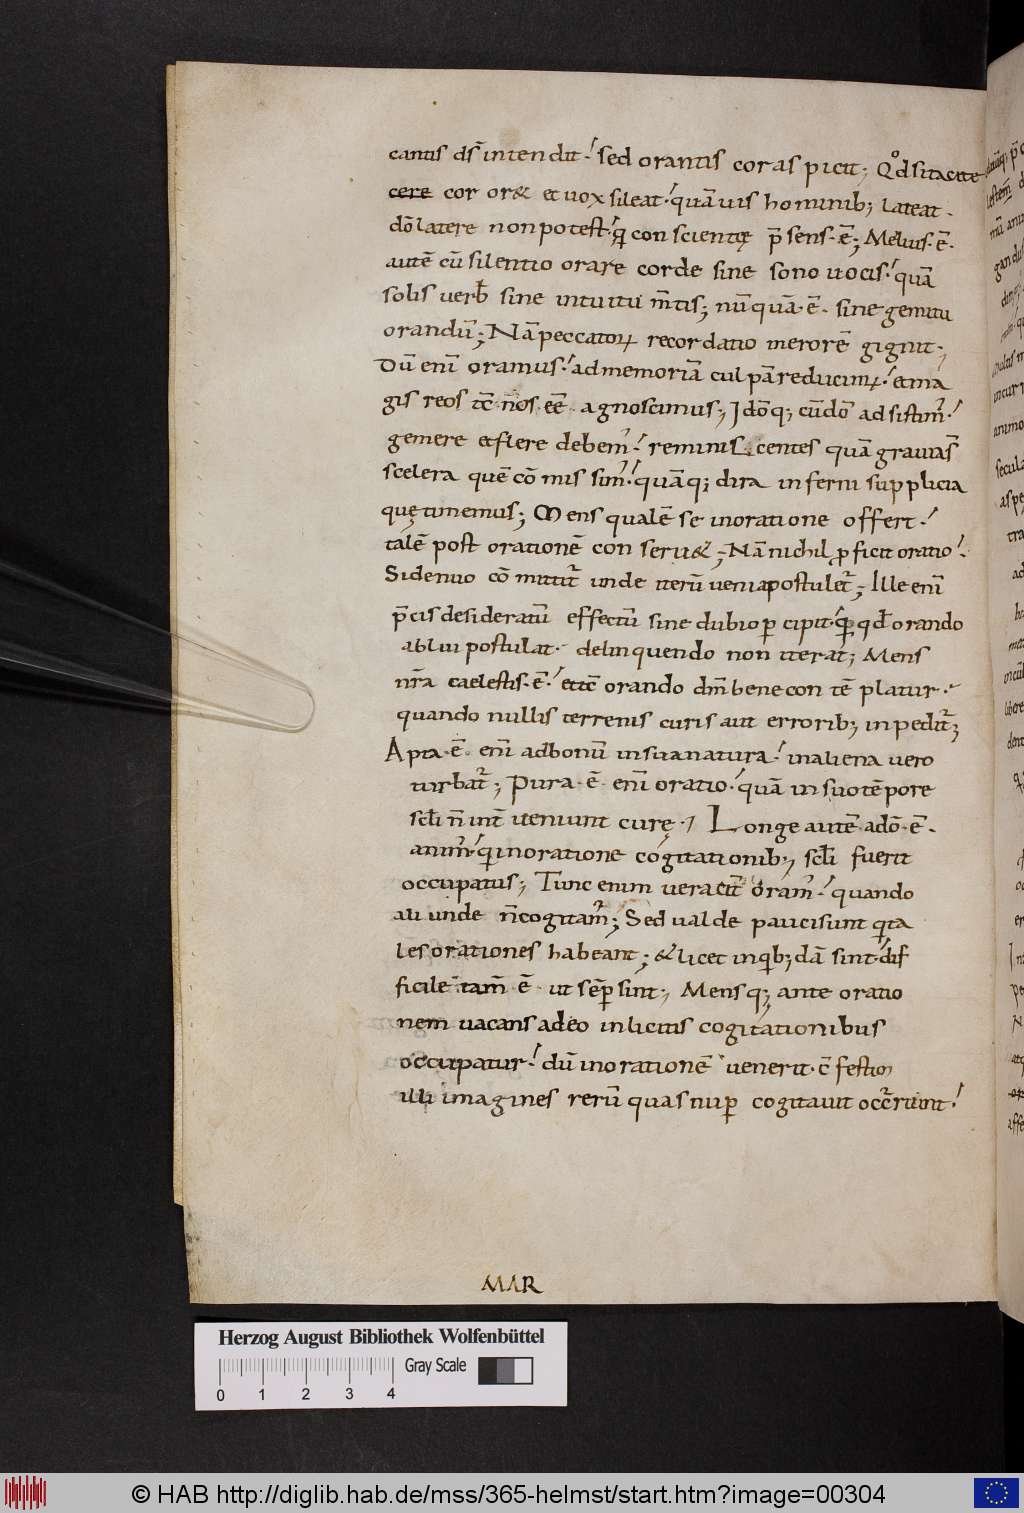 cantis ds̄ intendit. sed orantis cor aspicit; Qd̊ si tacite
cere cor or& et uox sileat. quāuis hominib; lateat.
dō latere non potest. q̄ conscientię p̄sens.ē; Melius.ē.
autē cū silentio orare corde sine sono uocis. quā
solis uerb̄ sine intuitu m̄tis; nūquā.ē. sine gemitu
orandū; Nā peccatoꝝ recordatio merorē gignit;
Dū enī oramus. ad memoriā culpā reducimꝰ. et ma
gis reos tc̄ nos eē agnoscimus; Idōq; cū dō adsistim̄.
gemere & flere debem̄. reminiscentes quā grauia s̄
scelera quę cōmisim̄. quāq; dira inferni supplicia
quę timemus; Mens qualē se in oratione offert.
talē post orationē conseru&; Nā nichil ꝓficit oratio.
Si denuo cōmittit̄ unde iterū uenia postulet̄; Ille enī
p̄cis desideratū effectū sine dubio ꝑcipit. q̄ qd̄ orando
ablui postulat. delinquendo non iterat; Mens
nr̄a caelestis.ē. et tc̄ orando dm̄ bene contēplatur.
quando nullis terrenis curis aut errorib; inpedit̄;
Apta.ē. enī ad bonū in sua natura. in aliena uero
turbat̄; Pura.ē. enī oratio. quā in suo tēpore
scl̄i n̄ int̄ueniunt curę; Longe autē a dō.ē.
anim̄. q̄ in oratione cogitationib; scl̄i fuerit
occupatus; Tunc enim ueracit̄ oram̄. quando
aliunde n̄ cogitam̄; Sed ualde pauci sunt q̄ ta
les orationes habeant; & licet in q̄b;dā sint. dif
ficile tam̄ ē. ut sēp̄ sint; Mens q; ante oratio
nem uacans a dēo inlicitis cogitationibus
occupatur. dū in orationē uenerit. c̄festim
illi imagines rerū quas nuꝑ cogitauit occ̄runt.
MAR
Herzog August Bibliothek Wolfenbüttel
Gray Scale
0 1 2 3 4
© HAB http://diglib.hab.de/mss/365-helmst/start.htm?image=00304